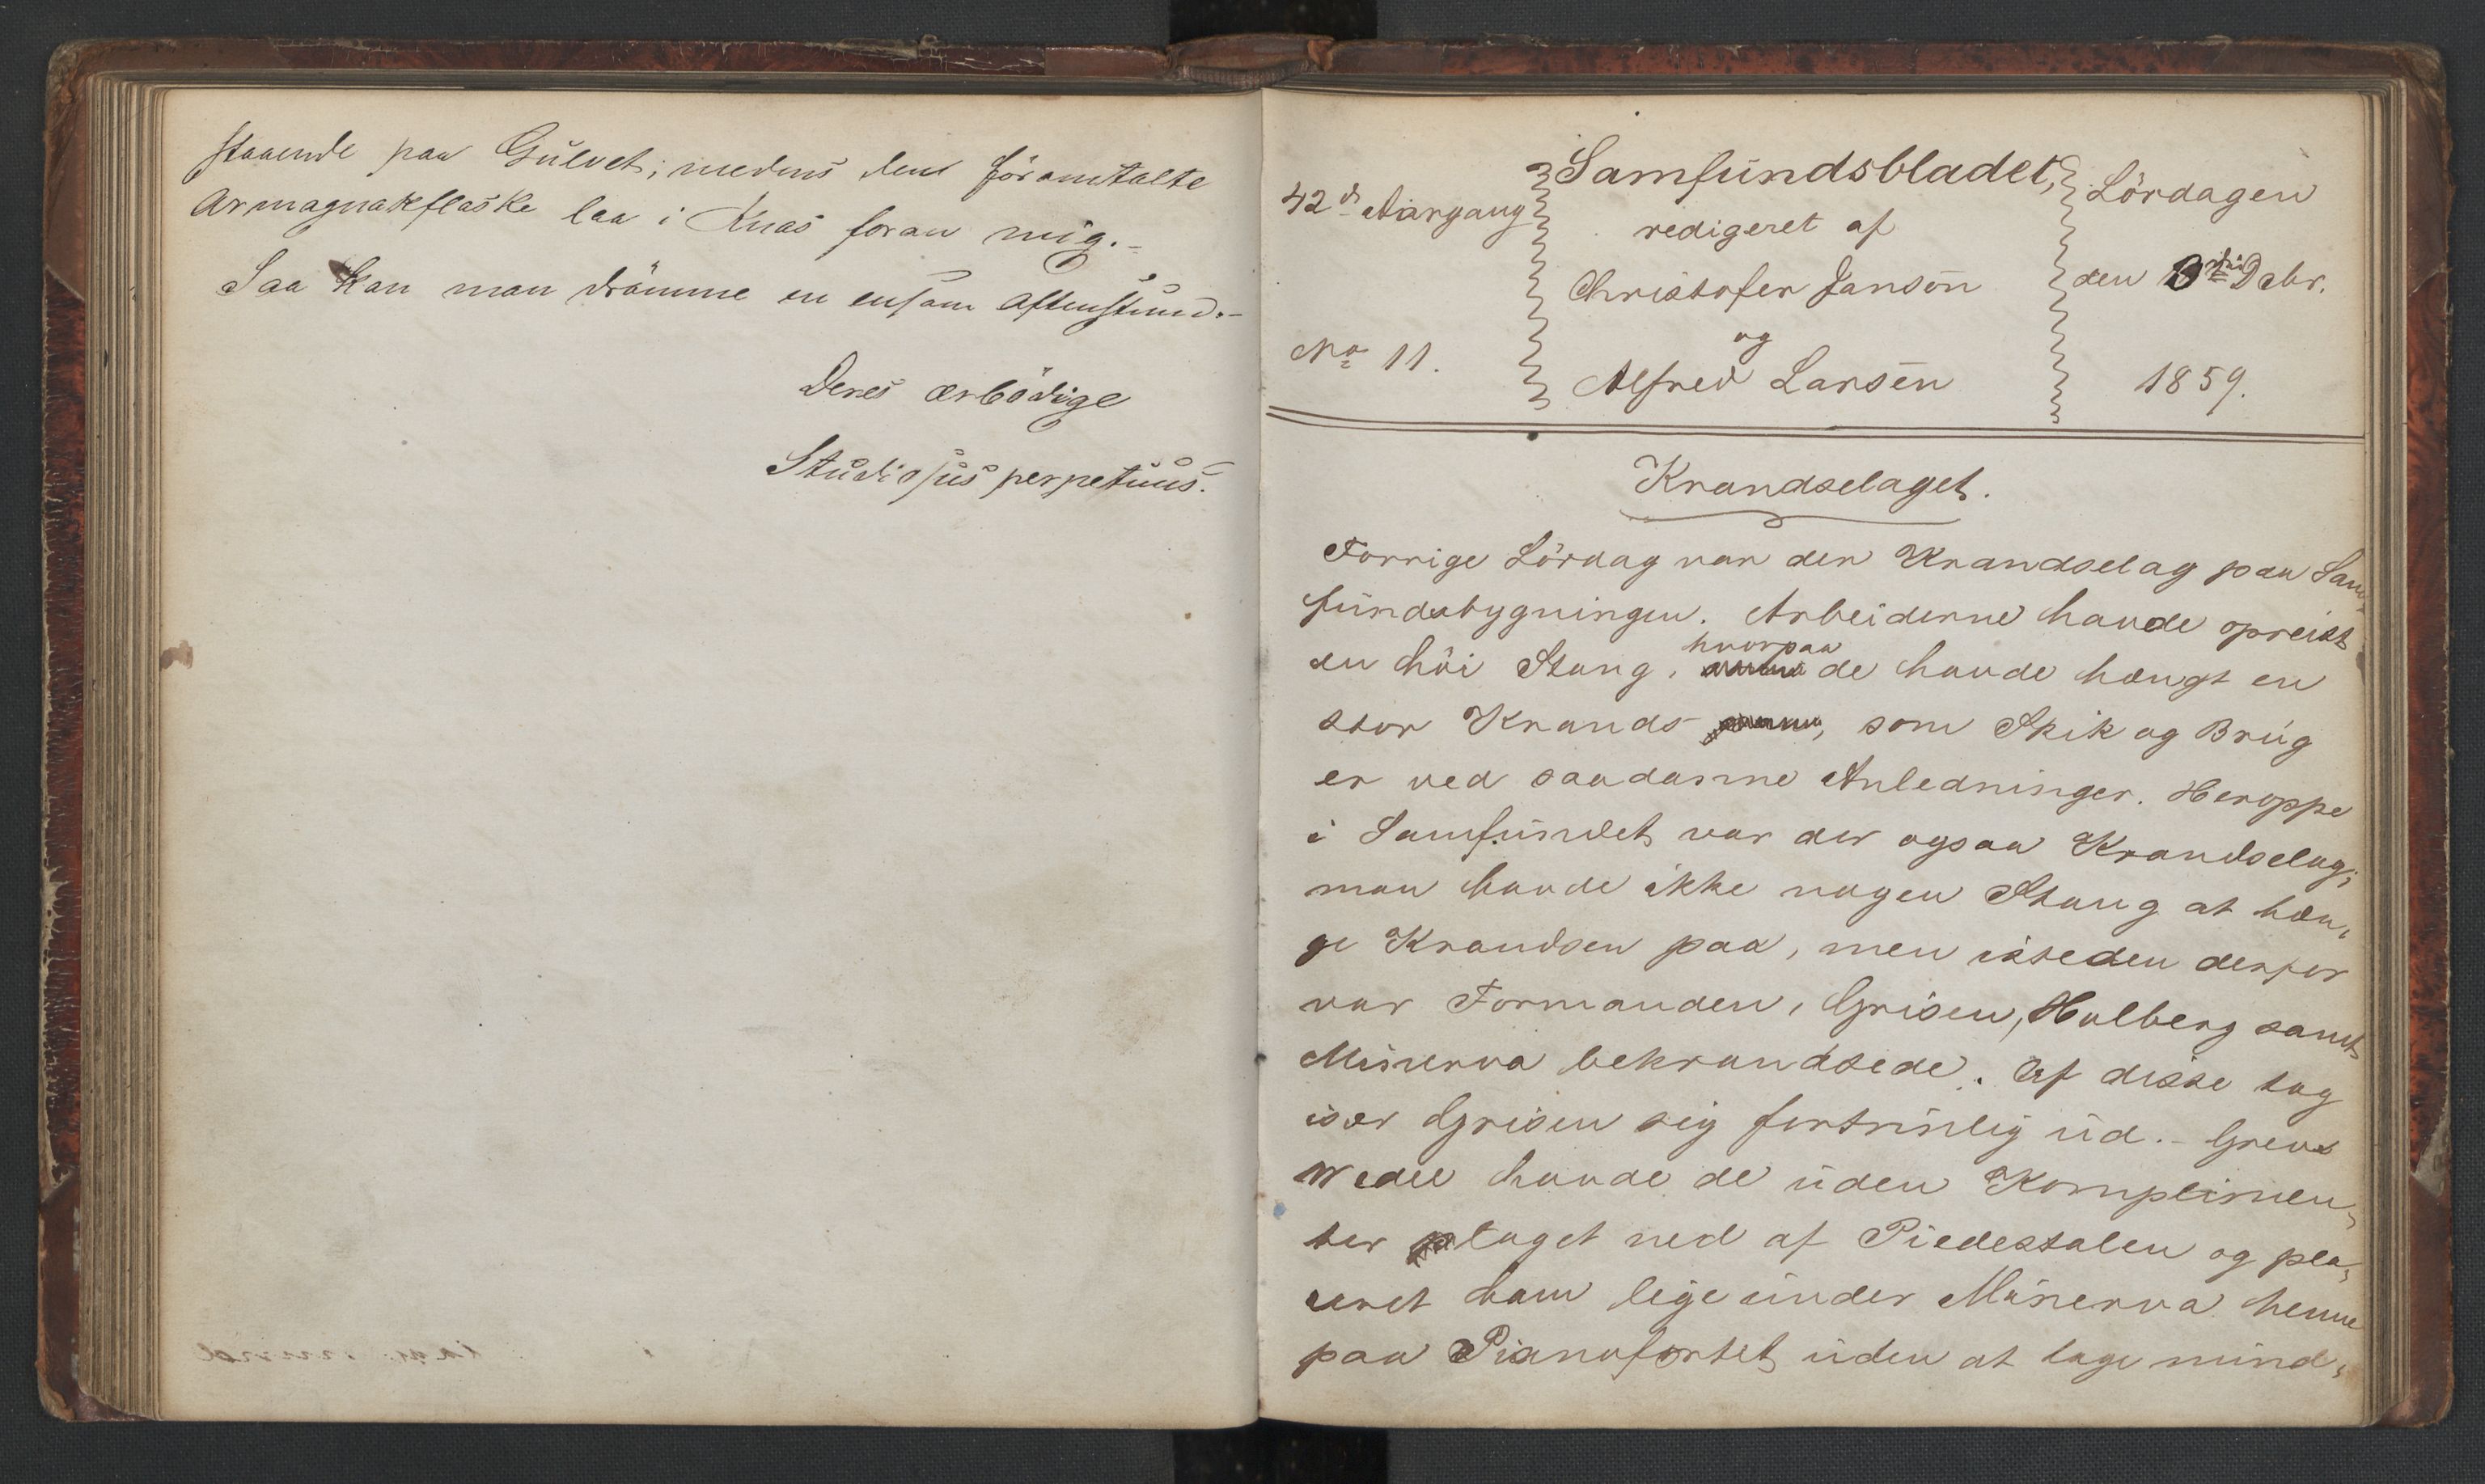 staaende paa Gulvet; medens den föromtalte
Armagnakflaske laa i Knas foran mig.-
Saa kan man drömme en ensom Aftenstund.-
Deres ærbödige
Studiosus perpetuus.
42de Aargang
No 11.
Samfundsbladet,
redigeret af
Christofer Janson
og
Alfred Larsen
Lördagen
den Debr.
1859.
Krandselaget.
Forrige Lördag var der Krandselag paa Sam-
fundsbygningen. Arbeiderne havde opreist
en höi Stang, hvorpaa de havde hængt en
stor Krands, som Skik og Brug
er ved saadanne Anledninger. Heroppe
i Samfundet var der ogsaa Krandselag;
man havde ikke nogen Stang at hæn-
ge Krandsen paa, men isteden derfor
var Formanden, Grisen, Holberg samt
Minerva bekrandsede. Af disse tog
især Grisen sig fortrinlig ud.- Grev
Wedel havde de uden Komplimen-
ter taget ned af Piedestalen og pla-
ceret ham lige under Minerva henne
paa Pianofortet uden at tage mind-